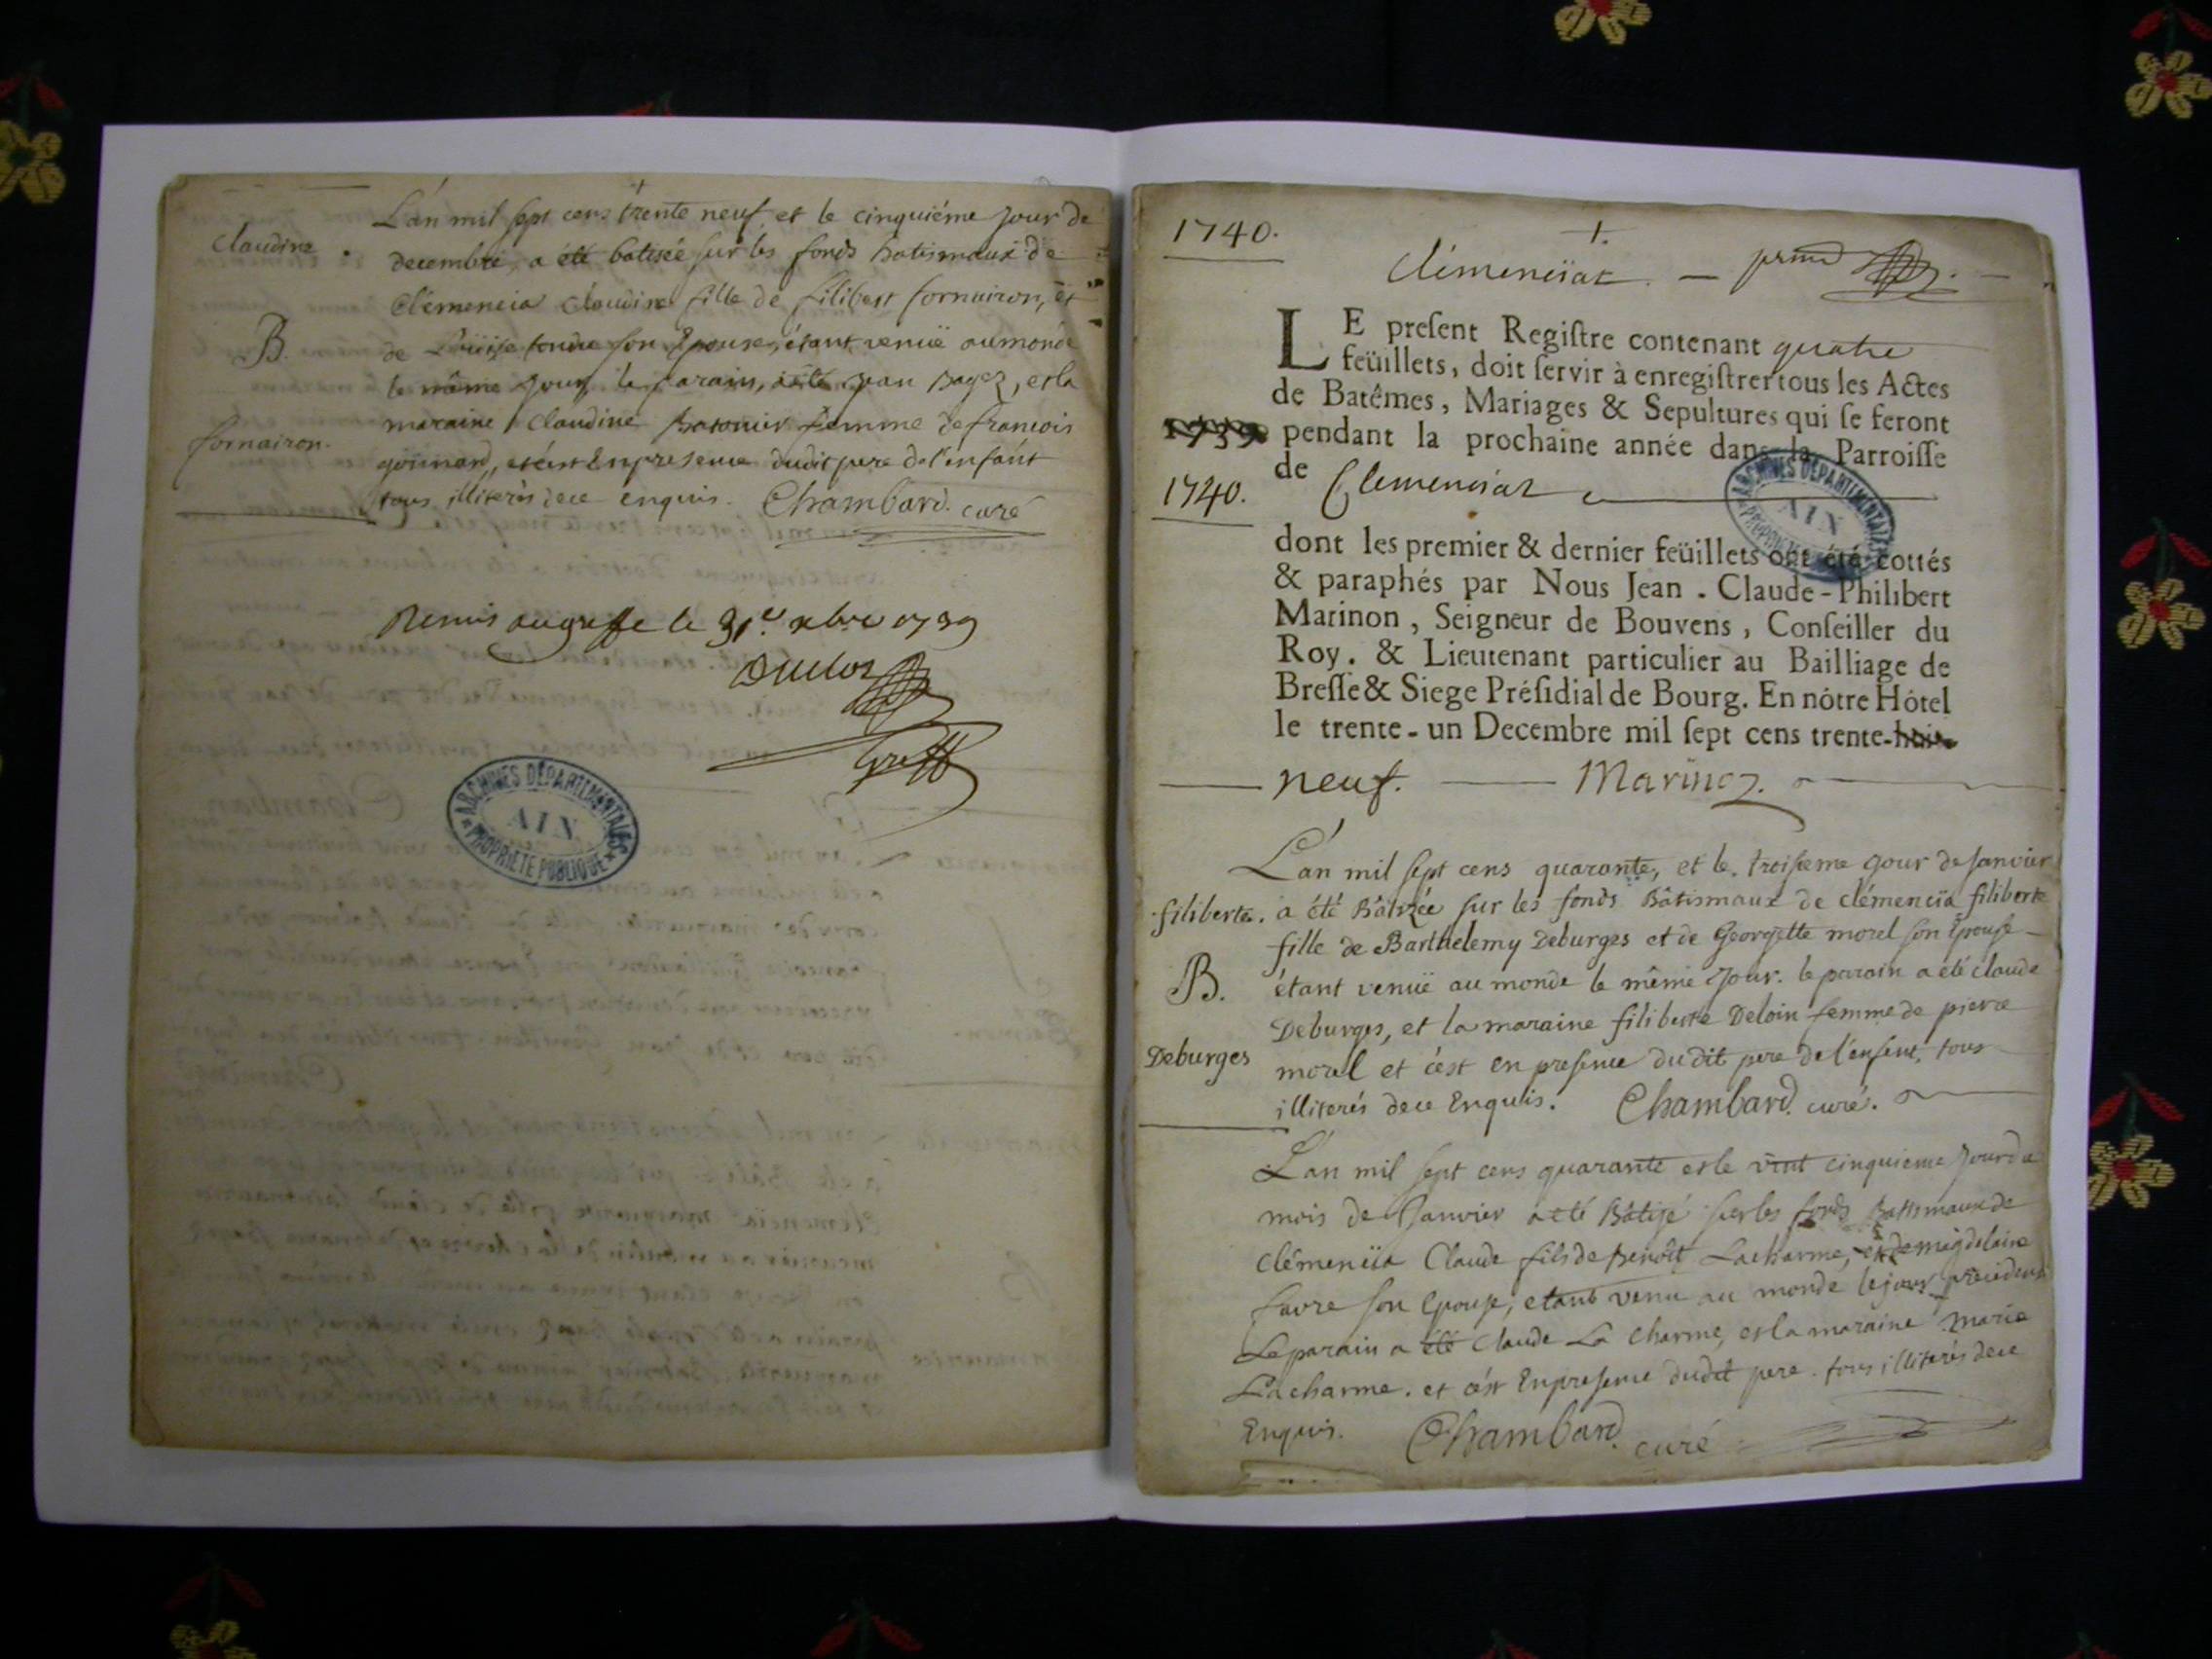 L'an mil sept cens trente neuf et le cinquiéme jour de
Claudine
decembre, a été batisée sur les fonds batismaux de
Clémencia Claudine fille de filibert fornairon, et
B.
de Loüise son Epouse, étant venüe au monde
le même jour, le parain, a été jean, et la
maraine Claudine femme de francois
fornairon.
et c'est En presence dudit pere de l'enfant
tous illiterés de ce enquis. Chambard. curé
Remis au greffe le 31e. xbre 1739
Greff
ARCHIVES DEPARTEMENTALES
AIN
PROPRIETE PUBLIQUE
1740.
1.
Clémenciat. —
LE present Registre contenant quatre
feüillets, doit servir à enregistrer tous les Actes
de Batêmes, Mariages & Sepultures qui se feront
1739 pendant la prochaine année dans la Parroisse
de Clemenciat
1740.
ARCHIVES DEPARTEMENTALES
AIN
dont les premier & dernier feüillets ont été cottés
& paraphés par Nous Jean - Claude - Philibert
Marinon, Seigneur de Bouvens, Conseiller du
Roy. & Lieutenant particulier au Bailliage de
Bresse & Siege Présidial de Bourg. En nôtre Hôtel
le trente - un Decembre mil sept cens trente-huit
neuf. — Marinon.
L'an mil sept cens quarante, et le troisieme jour de Janvier
filiberte. a été Bâtisée sur les fonds Bâtismaux de clémencïa filiberte
fille de Barthelemy Deburges et de Georgette morel son Epouse
B. étant venüe au monde le même jour. le parain a été claude
Deburges, et la maraine filiberte Deloin femme de pierre
Deburges morel et c'est en presence du dit pere de l'enfent, tous
illiterés de ce Enquis. Chambard. curé.
L'an mil sept cens quarante et le vint cinquieme jour du
mois de Janvier a eté Bâtisé sur les fonds Batismaux de
clémencïa Claude fils de Benoît Lacharme, et de magdelaine
favre son Epouse, etant venu au monde le jour precedent
Le parain a été Claude La charme, et la maraine marie
Lacharme. et c'est En presence dudit pere. tous illiterés de ce
Enquis. Chambard. curé